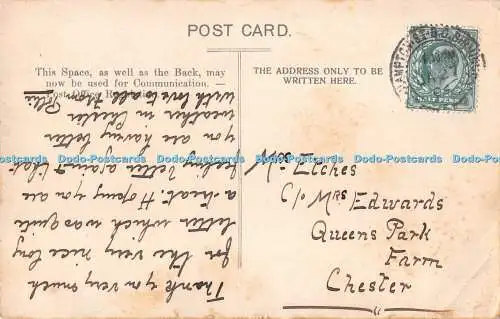 POST CARD.
This Space, as well as the Back, may
now be used for Communication.—
Post Office Regulation.
THE ADDRESS ONLY TO BE
WRITTEN HERE.
HALF PENNY
Etches
C/o Mrs Edwards
Queens Park
Farm
Chester
Thank you very much
for the very nice long
letter which was quite
a treat. Hoping you are
feeling better against that
you are having better
weather in Chester
with love to all from
Dodo-Postcards Dodo-Postcards Dodo-Postcards Dodo-Postcards Dodo-Postcards Dodo-Postcards